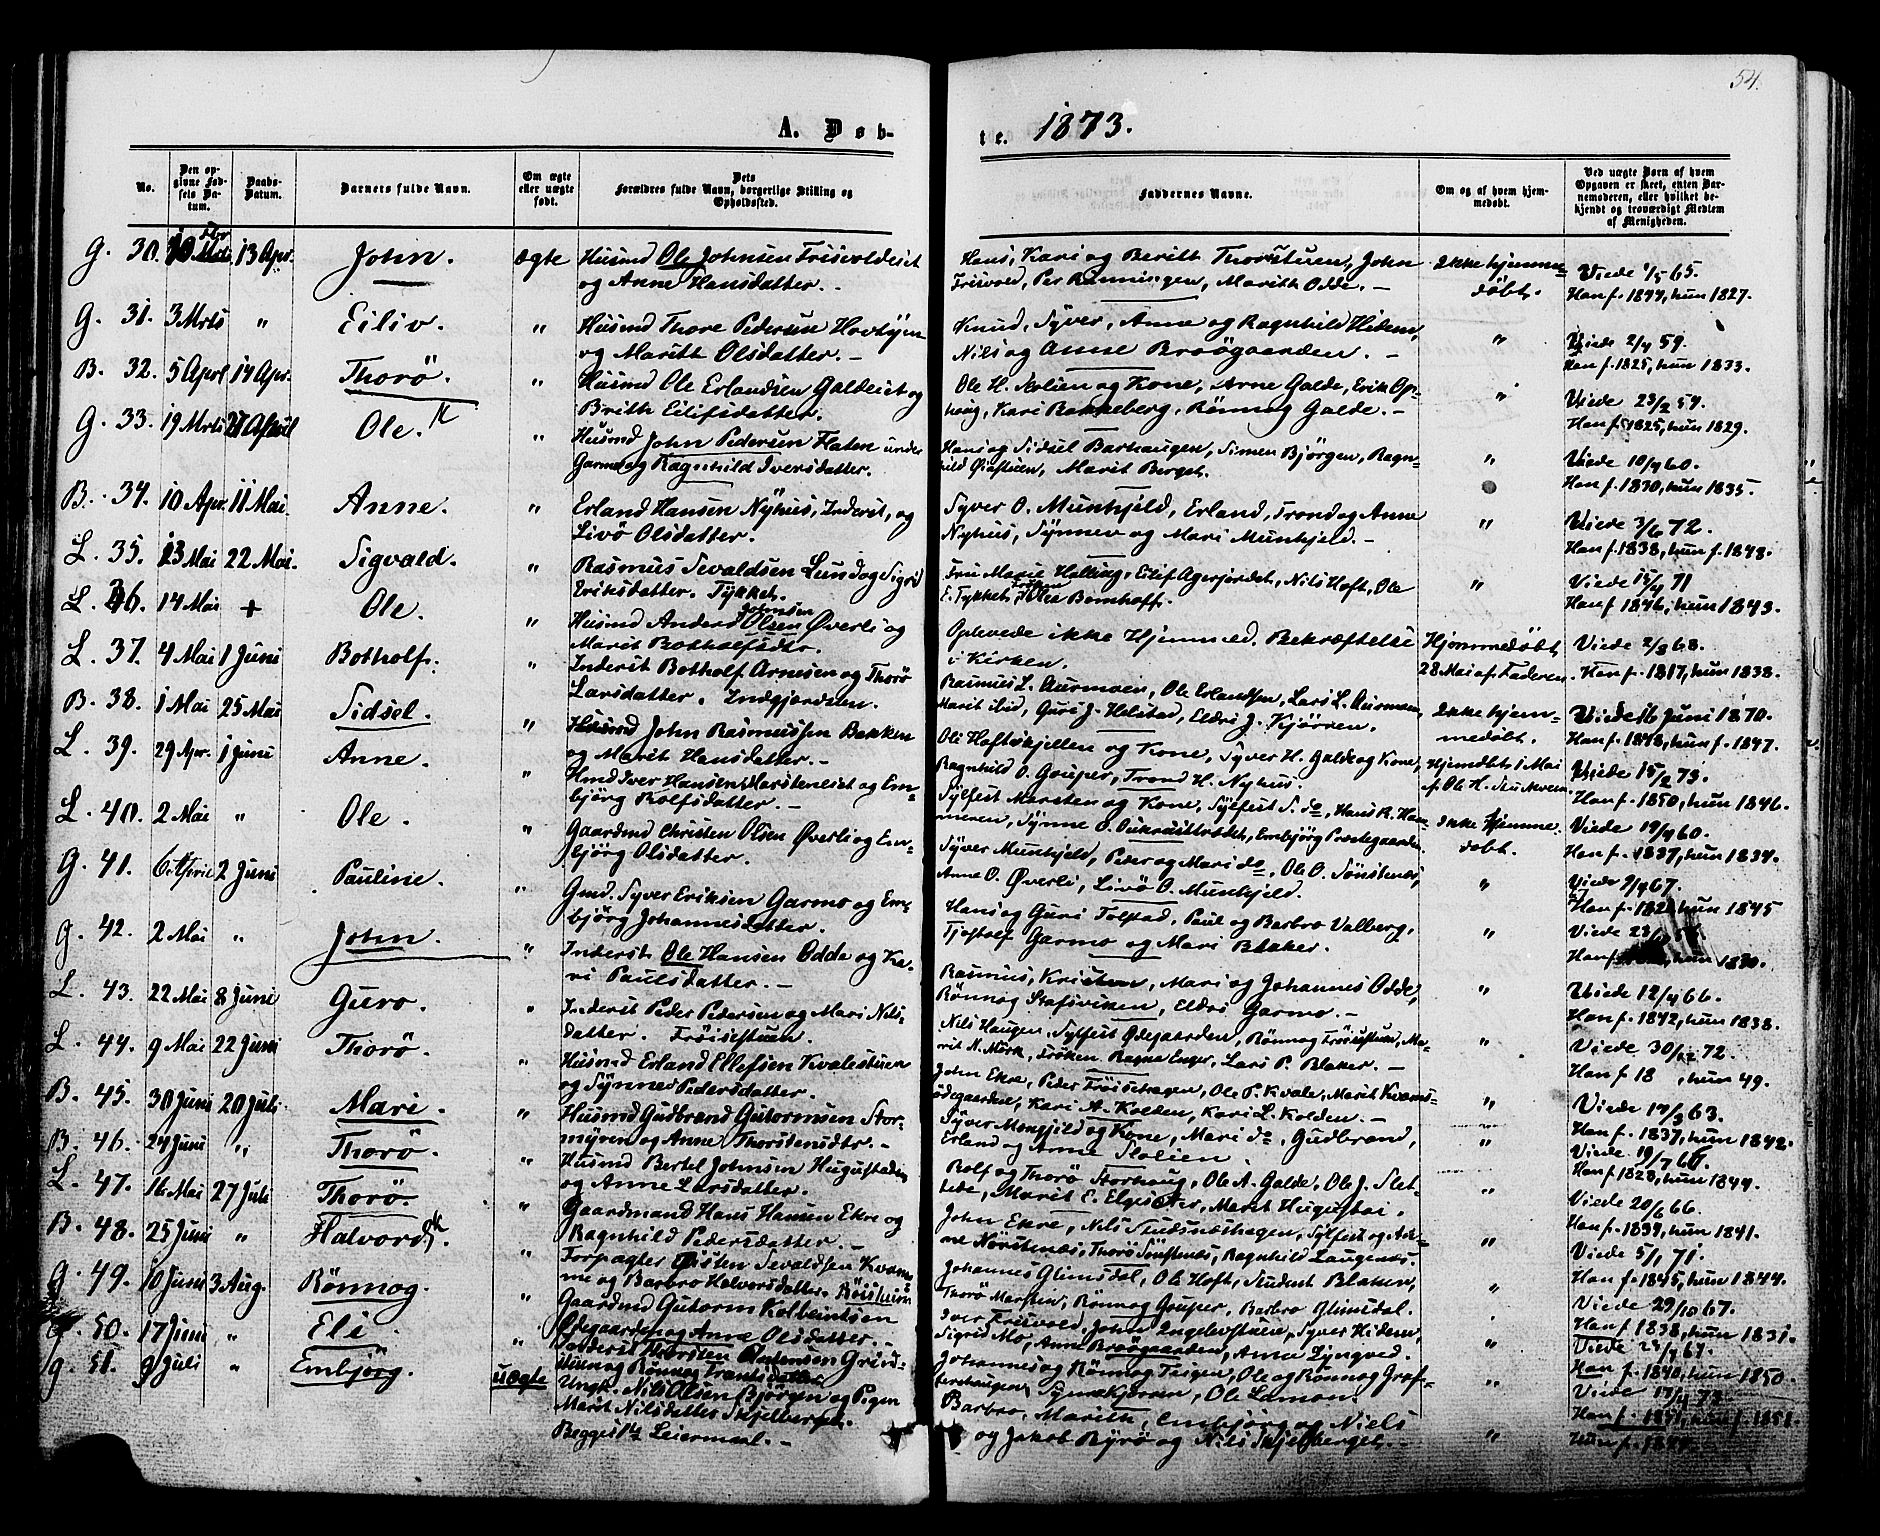 54.
A. Døb-
te. 1873.
No.
Den op-
givne Fød-
sels Da-
tum.
Daabs-
Datum.
Barnets fulde Navn.
Om ægte
eller uægte
født.
Dets
Forældres fulde Navn, borgerlige Stilling og
Opholdssted.
Faddernes Navne.
Om og af hvem hjem-
medøbt.
Ved uægte Børn af hvem
Opgaven er skeet, enten Bar-
nemoderen, eller hvilket be-
kjendt og troværdigt Medlem
af Menigheden.
G. 30. 13 Apr. John. ægte Husmd Ole Johnsen Frisvoldeiet
og Anne Hansdatter. –
Hans, Kari og Berith Thorstuen, John
Frisvold, Per Rønningen, Marith Odde. –
Ikke hjemme-
døbt.
Viede 1/5 65.
Han f. 1844, hun 1827.
G. 31. 3 Mrts " Eiliv. " Husmd Thore Pedersen Hovtýrn
og Marith Olsdatter. –
Knud, Syver, Anne og Ragnhild Hidem,
Nils og Anne Broögaarden. –
" Viede 2/4 59.
Han f. 1825, hun 1833.
B. 32. 5 April 14 Apr. Thorö. " Husmd Ole Erlandsen Galdeiet og
Brith Eilifsdatter.
Ole H. Slolien og Kone, Arne Galde, Erik Op-
haug, Kari Bakkeberg, Rönnog Galde. –
" Viede 23/2 57.
Han f. 1825, hun 1829.
G. 33. 19 Mrts 27 April Ole. " Husmd John Pedersen Flaten under
Garmo og Ragnhild Iversdatter.
Hans og Sidsel Barhaugen, Simen Björgen, Ragn-
hild Øiastuen, Marit Berget.
" Viede 10/4 60.
Han f. 1830, hun 1835.
B. 34. 10 Apr. 11 Mai. Anne. " Erland Hansen Nyhus, Inderst, og
Livö Olsdatter.
Syver O. Munhjeld, Erland, Trond og Anne
Nyhus, Synnev og Mari Munhjeld. –
" Viede 3/6 72.
Han f. 1838, hun f. 1848.
L. 35. 23 Mai 22 Mai. Sigvald. " Rasmus Sevaldsen Lund og Sigrid
Eriksdatter. Týkket.
Fru Marie Halling, Eilif Agerjordet, Nils Hoft, Ole
E. Tykket, Frøken Olea Bomhoff.
" Viede 15/4 71
Han f. 1846, hun 1843.
L. 36. 14 Mai + Ole. " Husmd Anders Johnsen Øverli og
Marit Botholfsdtr.
Oplevede ikke Hjemmed. Bekræftelse
i Kirken.
Hjemmedøbt
28 Mai af Faderen.
Viede 2/3 68.
Han f. 1817, hun 1838.
L. 37. 4 Mai 1 Juni Botholf. " Inderst Botholf Arnesen og Thorö
Larsdatter. Indgjorden.
Rasmus L. Aurmoen, Ole Erlandsen, Lars L. Aurmoen,
Marit ibid, Guri J. Helstad, Eldri J. Kjörren.
Ikke hjem-
medøbt.
Viede 16 Juni 1870.
Han f. 1848, hun f. 1847.
B. 38. 1 Mai 25 Mai Sidsel. " Husmd John Rasmussen Bakken
og Marit Hansdatter. –
Ole Hoftskjellen og Kone, Syver H. Galde og Kone,
Ragnhild O. Gouper, Trond H. Nyhus.
Hjemdøbt 1 Mai
Viede 15/2 73.
Han f. 1850, hun 1846.
L. 39. 29 Apr. 1 Juni Anne. " Hmd Iver Hansen Marsteneiet og Em-
björg Rolfsdatter. –
Sylfest Marsten og Kone, Sylfest S. do, Hans R. Ham-
meren, Synne O. Embjörg Prestegaarden.
Ikke hjemme-
døbt.
Viede 19/4 60.
Han f. 1837, hun 1834.
L. 40. 2 Mai " Ole. " Gaardmd Christen Olsen Øverli og Em-
björg Olsdatter.
Syver Munhjeld, Peder og Mari do, Ole O. Sönstenæs,
Anne O. Øverli, Livö O. Munhjeld.
" Viede 9/4 67.
hun 1845
G. 41. 6 April 2 Juni Pauline. " Gmd. Syver Eriksen Garmo og Em-
björg Johannesdatter.
Hans og Guri Tolstad, Paul og Barbro Valberg,
Tjostolf Garmo og Mari Blaker.
" Viede
Han f. hun 1830.
G. 42. 2 Mai " John. " Inderst Ole Hansen Odde og Ka-
ri Paulsdatter. –
Rasmus, Kristen, Mari og Johannes Odde,
Rönnog Stafsviken, Eldri Garmo. –
" Viede 12/4 66.
Han f. 1842, hun 1838.
L. 43. 22 Mai 8 Juni Guro. " Inderst Peder Pedersen og Mari Nils-
datter. Fröisestuen.
Nils Haugen, Sylfest Ødegaarden, Rönnog Fröisestuen, Ma-
rit N. Mörk, Fröken Ragna Enger, Lars P. Blaker. –
" Viede 30/12 72.
Han f. 18 , hun 49.
L. 44. 9 Mai 22 Juni Thorö. " Husmd Erland Ellefsen Kvalestuen
og Synnev Pedersdatter.
John Ekre, Peder Fröisehagen, Ole P. Kvale, Marit Kvams-
ødegaarden, Kari A. Kolden, Kari L. Kolden. –
" Viede 14/3 63.
Han f. 1837, hun 1842.
B. 45. 30 Juni 20 Juli Mari. " Husmd Gudbrand Gutormsen Stor-
myren og Anne Thorstensdtr. –
Syver Mengjeld og Kone, Mari do, Gudbrand,
Erland og Anne Slolien.
" Viede 19/7 66.
Han f. 1828, hun 1844.
B. 46. 24 Juni " Thorö. " Husmd Bertel Johnsen Hugustaden
og Anne Larsdatter. –
Rolf og Thorö Storhaug, Ole A. Galde, Ole J. Slet-
tede, Marit E. Elgisæter, Marit Hugustad.
" Viede 20/6 66.
Han f. 1839, hun 1841.
L. 47. 16 Mai 27 Juli Thorö. " Gaardmand Hans Hansen Ekre og
Ragnhild Pedersdatter. –
John Ekre, Nils Sylfest og An-
ne Nörstenæs, Thorö Sönstenæs, Ragnhild Laugenæs.
" Viede 5/1 71.
Han f. 1845, hun 1844.
B. 48. 25 Juni " Halvord. " Forpagter Østen Sevaldsen Kvam-
me og Barbro Halvorsdatter. Röisheim
Johannes Glimsdal, Ole Hoft, Student Blaker,
Thorö Marsten, Rönnog Gouper, Barbro Glimsdal.
" Viede 29/10 67.
Han f. 1838, hun 1831.
G. 49. 10 Juni 3 Aug. Rönnog. " Gaardmd Gutorm Kolbeintsen
Ødegaarden og Anne Olsdatter. –
Iver Frisvold, John Ingelvstuen, Syver Hidem,
Sigrid Mo, Anne Broögaarden, Anne Lyngved.
" Viede
Han f. 1840, hun 1850.
G. 50. 17 Juni " Eli. " Inderst Thorsten
og Rönnog
Johannes og Rönnog Teigen, Ole og Rönnog Graf-
Ole Lamon.
" Viede
Han f. 1851, hun f. 1851.
G. 51. 9 Juli " Embjörg. uægte Ungk. Nils Olsen Björgen og Pigen
Marit Nilsdatter Skjelberget.
Begges 1ste Leiermaal. –
Barbro, Marith, Embjörg og Niels
og Jakob Byrö og Nils Skjelberget. –
" hun f.